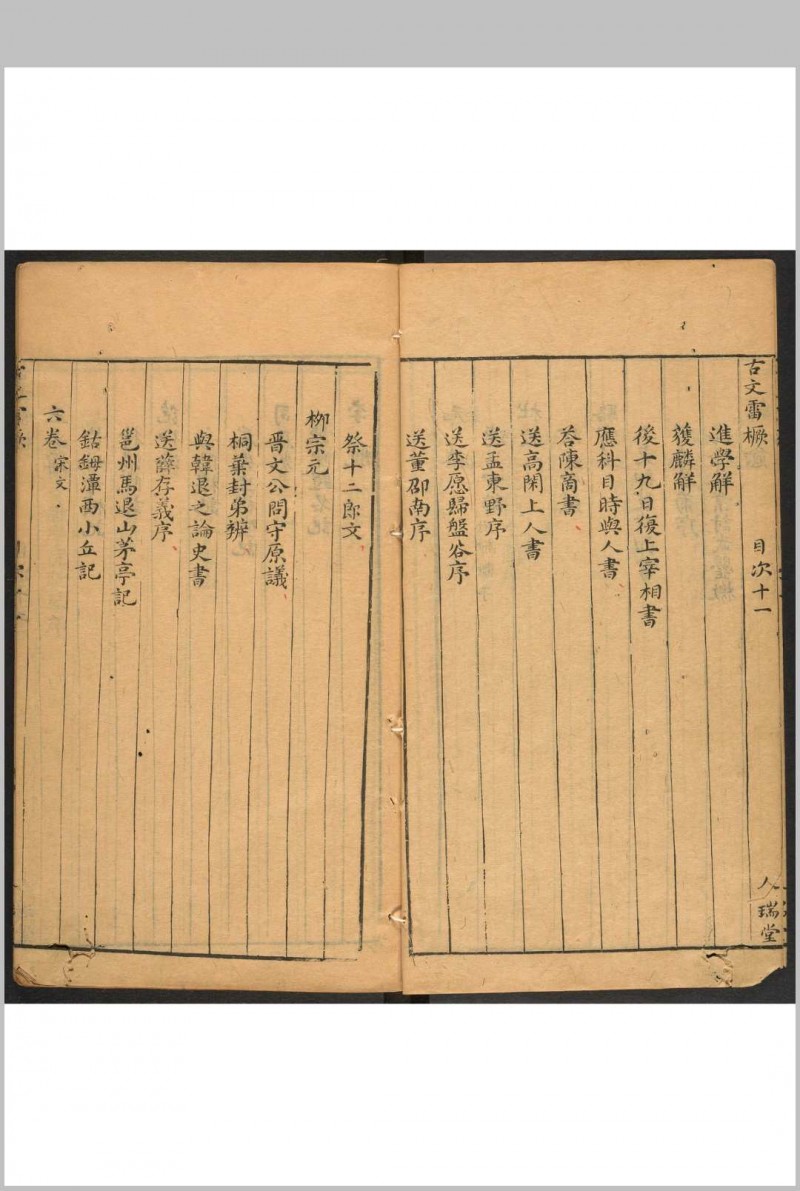 古文雷橛 目次十一 人瑞堂
進學解
獲麟解
後十九日復上宰相書
應科目時與人書
荅陳商書
送高閑上人書
送孟東野序
送李愿歸盤谷序
送董邵南序
祭十二郎文
柳宗元
晋文公問守原議
桐葉封弟辨
與韓退之論史書
送薛存義序
邕州馬退山茅亭記
鈷鉧潭西小丘記
六卷 宋文